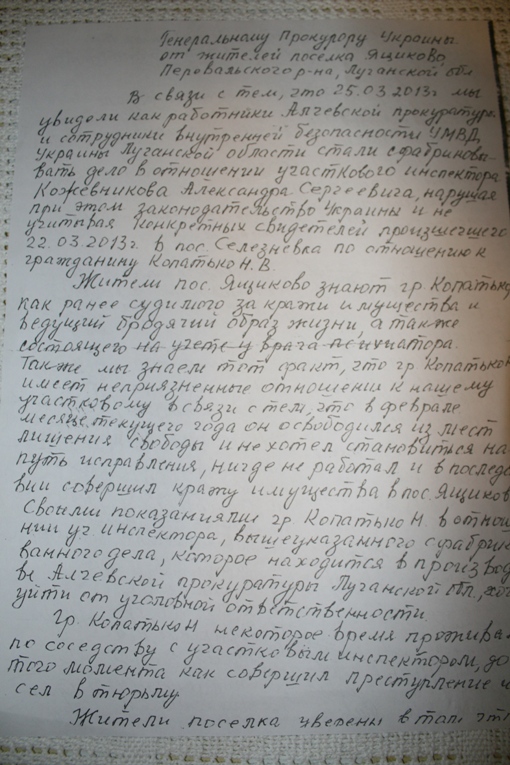 Генеральному Прокурору Украины
от жителей поселка Ящиково
Перевальского р-на, Луганской обл
В связи с тем, что 25.03.2013г мы
увидели как работники Алчевской прокуратур
и сотрудники внутренней безопасности УМВД
Украины Луганской области стали сфабриковы-
вать дело в отношении участкового инспектора
Кожевникова Александра Сергеевича, нарушая
при этом законодательство Украины и не
учитывая конкретных свидетелей произшешего
22.03.2013г. в пос. Селезневка по отношению к
гражданину Копатько Н.В.
Жители пос. Ящиково знают гр. Копатько
как ранее судимого за кражи имущества и
ведущий бродячий образ жизни, а также
состоящего на учете у врача психиатора.
Также мы знаем тот факт, что гр Копатько Н
имеет неприязненные отношения к нашему
участковому в связи с тем, что в феврале
месяце текущего года он освободился из мест
лишения свободы и не хотел становиться на
путь исправления, нигде не работал и в последс
вии совершил кражу имущества в пос. Ящиков
Своими показаниями гр Копатько Н. в отнош
нии уч. инспектора, вышеуказанного сфабрик
ванного дела, которое находится в производ
ве Алчевской прокуратуры Луганской обл., хоч
уйти от уголовной ответственности.
Гр. Копатько Н некоторое время прожива
по соседству с участковым инспектором, до
того момента как совершил преступление и
сел в тюрьму
Жители поселка уверены в том что